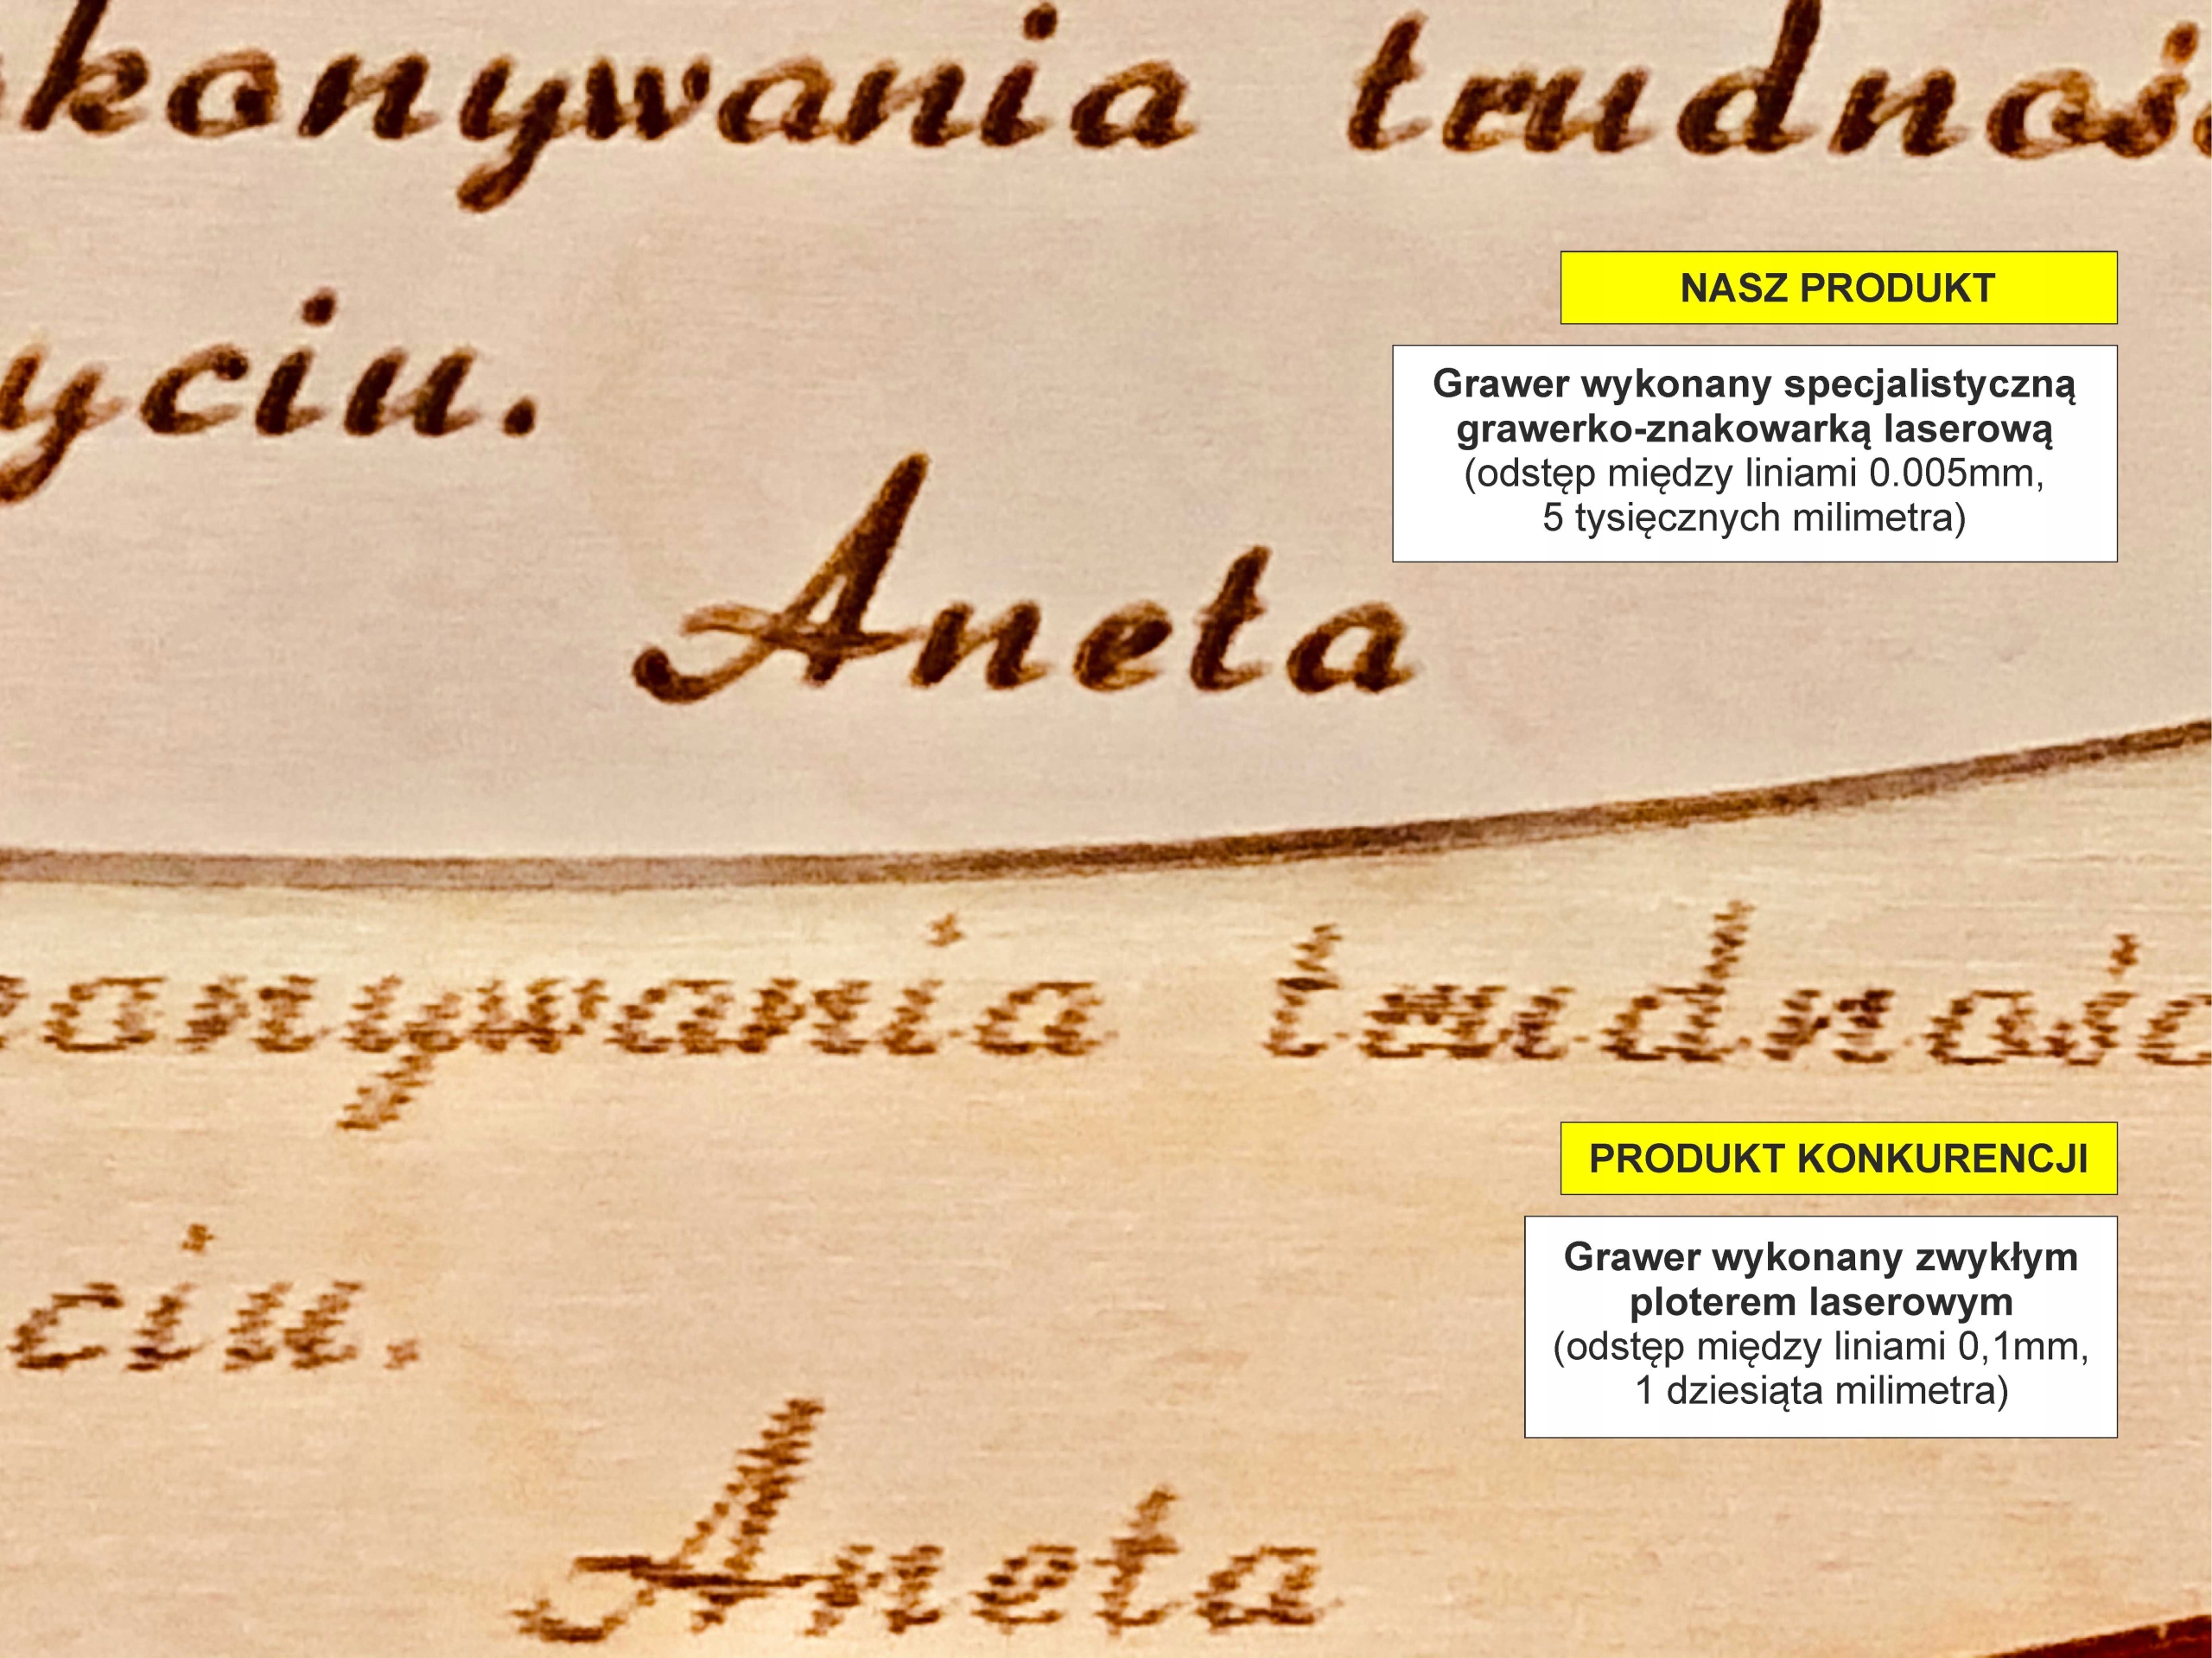 konywania trudnoś
yciu.
Aneta
NASZ PRODUKT
Grawer wykonany specjalistyczną
grawerko-znakowarką laserową
(odstęp między liniami 0.005mm,
5 tysięcznych milimetra)
onywania trudnośc
ciu.
Aneta
PRODUKT KONKURENCJI
Grawer wykonany zwykłym
ploterem laserowym
(odstęp między liniami 0,1mm,
1 dziesiąta milimetra)